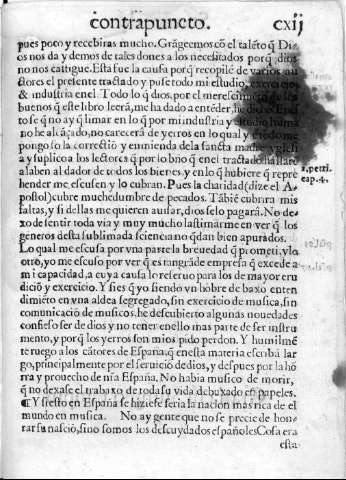 contrapuncto. CXIJ
pues poco y recebiras mucho. Grãgeemos cõ el talẽto q̃ Di-
os nos da y demos de tales dones a los necesitados porq̃ dios
no nos castigue. Esta fue la causa porq̃ recopile de varios au
ctores el presente tractado y puse todo mi estudio, exercicio
& industria en el. Todo lo q̃ dios, por el meresci de los
buenos q̃ este libro leerã, me ha dado a entẽder, he
to se q̃ no ay q̃ limar en lo q̃ por mi industria y estudio huma
no he alcãçado, no carecerà de yerros en lo qual y ẽ todo me
pongo so la correctiõ y enmienda dela sancta madre yglesi
a y suplico a los lectores q̃ por lo bno q̃ en el tractado hallarẽ
alaben al dador de todos los bienes, y en lo q̃ hubiere q̃ repre
hender me escusen y lo cubran. Pues la charidad (dize el A-
postol) cubre muchedumbre de pecados. Tãbiẽ cubrira mis
faltas, y si dellas me quieren auisar, dios se lo pagarà. No de-
xo de sentir toda via y muy mucho lastimarme en ver q̃ los
generos desta sublimada sciencia no q̃dan bien apurados.
Lo qual me escusa por vna parte la breuedad q̃ prometi, y lo
otro, yo me escuso por ver q̃ es tan grãde empresa q̃ excede a
mi capacidad, a cuya causa lo reseruo para los de mayor eru
diciõ y exercicio. Y si es q̃ yo siendo vn hõbre de baxo enten
dimiẽto en vna aldea segregado, sin exercicio de musica, sin
comunicaciõ de musicos, he descubierto algunas nouedades
confieso ser de dios y no tener en ello mas parte de ser instru
mento, y porq̃ los yerros son mios pido perdon. Y humilmẽ
te ruego a los cãtores de España, q̃ en esta materia escribã lar
go, principalmente por el seruiciõ de dios, y despues por la hõ
rra y prouecho de nr̃a España. No habia musico de morir,
q̃ no dexase el trabaxo de toda su vida debuxado en papeles.
¶ Y si esto en España se hiziese seria la naciõn mas rica de el
mundo en musica. No ay gente que no se precie de hon-
rar su nasciõ, sino somos los descuydados españoles Cosa era
esta
1, petri.
cap. 4.